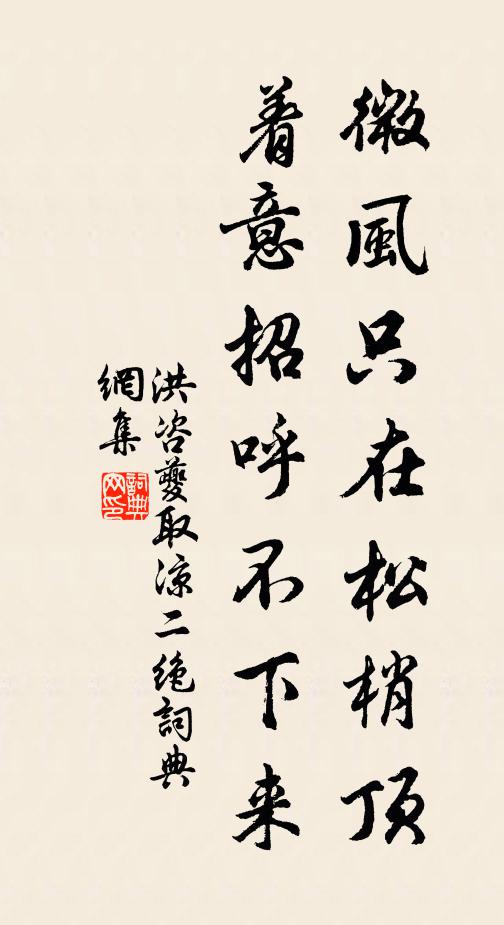 微風只在松梢頂
着意招呼不下来
洪咨夔取涼二絶詞典
網集
詞典
网印